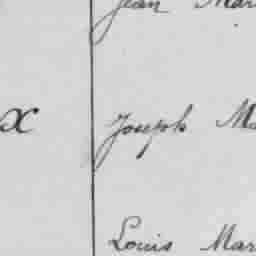 Jean Mar
x Joseph Ma
Louis Mar